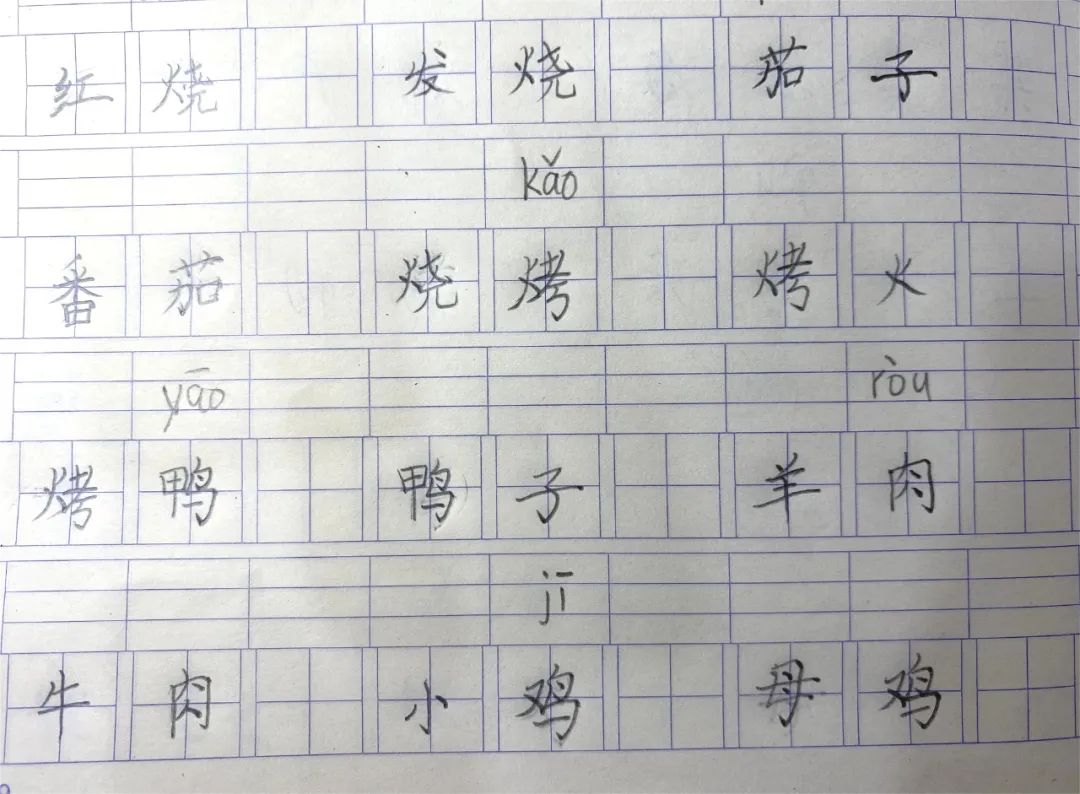 红烧 发烧 茄子
kǎo
番茄 烧烤 烤火
yāo ròu
烤鸭 鸭子 羊肉
jī
牛肉 小鸡 母鸡